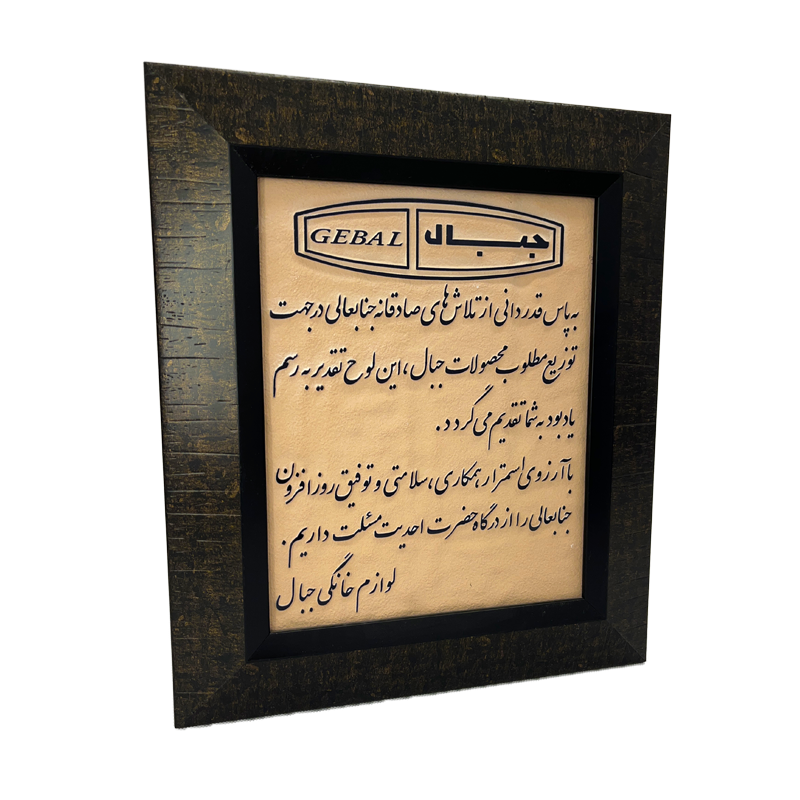 GEBAL جبال
به پاس قدردانی از تلاش‌های صادقانه جنابعالی در جهت
توزیع مطلوب محصولات جبال ، این لوح تقدیر به رسم
یادبود به شما تقدیم می گردد .
با آرزوی استمرار همکاری ، سلامتی و توفیق روزافزون
جنابعالی را از درگاه حضرت احدیت مسئلت داریم .
لوازم خانگی جبال